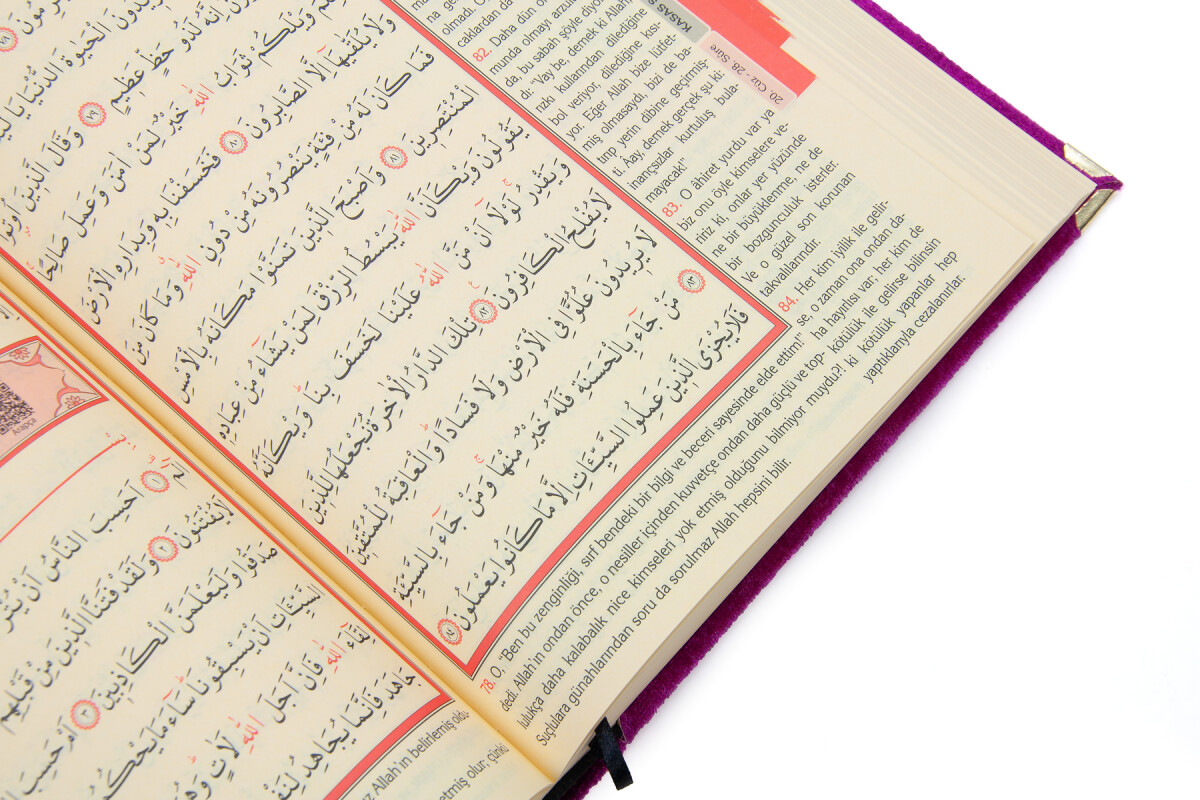 KASAS S
20. Cüz - 28. Sûre
caklardan da
82. Daha dün o
munda olmayı arzul
da, bu sabah şöyle diyo
di: "Vay be, demek ki Allah
rızkı kullarından dilediğine
bol veriyor, dilediğine kısı-
yor. Eğer Allah bize lütfet-
miş olmasaydı, bizi de ba-
tırıp yerin dibine geçirmiş-
ti. Aay, demek gerçek şu ki:
inançsızlar kurtuluş bula-
mayacak!"
83. O âhiret yurdu var ya
biz onu öyle kimselere ve-
ririz ki, onlar yer yüzünde
ne bir büyüklenme, ne de
bir bozgunculuk isterler.
Ve o güzel son korunan
takvalılarındır.
84. Her kim iyilik ile gelir-
se, o zaman ona ondan da-
ha hayırlısı var; her kim de
kötülük ile gelirse bilinsin
ki kötülük yapanlar hep
yaptıklarıyla cezalanırlar.
78. O, "Ben bu zenginliği, sırf bendeki bir bilgi ve beceri sayesinde elde ettim!"
dedi. Allah'ın ondan önce, o nesiller içinden kuvvetçe ondan daha güçlü ve top-
lulukça daha kalabalık nice kimseleri yok etmiş olduğunu bilmiyor muydu?!
Suçlulara günahlarından soru da sorulmaz Allah hepsini bilir.
ثَوَابُ اللّٰهِ خَيْرٌ لِمَنْ اٰمَنَ وَعَمِلَ صَالِحًا
وَلَا يُلَقّٰيهَٓا اِلَّا الصَّابِرُونَ ﴿٨٠﴾ فَخَسَفْنَا بِهِ وَبِدَارِهِ الْاَرْضَ
فَمَا كَانَ لَهُ مِنْ فِئَةٍ يَنْصُرُونَهُ مِنْ دُونِ اللّٰهِ وَمَا كَانَ مِنَ
الْمُنْتَصِرِينَ ﴿٨١﴾ وَاَصْبَحَ الَّذِينَ تَمَنَّوْا مَكَانَهُ بِالْاَمْسِ
يَقُولُونَ وَيْكَاَنَّ اللّٰهَ يَبْسُطُ الرِّزْقَ لِمَنْ يَشَٓاءُ مِنْ عِبَادِهِ
وَيَقْدِرُ لَوْلَٓا اَنْ مَنَّ اللّٰهُ عَلَيْنَا لَخَسَفَ بِنَا وَيْكَاَنَّهُ
لَا يُفْلِحُ الْكَافِرُونَ ﴿٨٢﴾ تِلْكَ الدَّارُ الْاٰخِرَةُ نَجْعَلُهَا لِلَّذِينَ
لَا يُرِيدُونَ عُلُوًّا فِي الْاَرْضِ وَلَا فَسَادًا وَالْعَاقِبَةُ لِلْمُتَّقِينَ
﴿٨٣﴾ مَنْ جَٓاءَ بِالْحَسَنَةِ فَلَهُ خَيْرٌ مِنْهَا وَمَنْ جَٓاءَ بِالسَّيِّئَةِ
فَلَا يُجْزَى الَّذِينَ عَمِلُوا السَّيِّـَٔاتِ اِلَّا مَا كَانُوا يَعْمَلُونَ ﴿٨٤﴾
Arapça
الٓمٓ ﴿١﴾ اَحَسِبَ النَّاسُ اَنْ يُتْرَ
لَا يُفْتَنُونَ ﴿٢﴾ وَلَقَدْ فَتَنَّا الَّذِينَ مِنْ قَبْلِهِمْ
صَدَقُوا وَلَيَعْلَمَنَّ الْكَاذِبِينَ ﴿٣﴾ اَمْ حَسِبَ
السَّيِّـَٔاتِ اَنْ يَسْبِقُونَا سَٓاءَ مَا يَحْكُمُ
لِقَٓاءَ اللّٰهِ فَاِنَّ اَجَلَ اللّٰهِ لَاٰتٍ وَهُوَ
جَاهَدَ فَاِنَّمَا يُجَاهِدُ لِنَفْ
Allah'ın belirlemiş oldu-
etmiş olur; çünkü